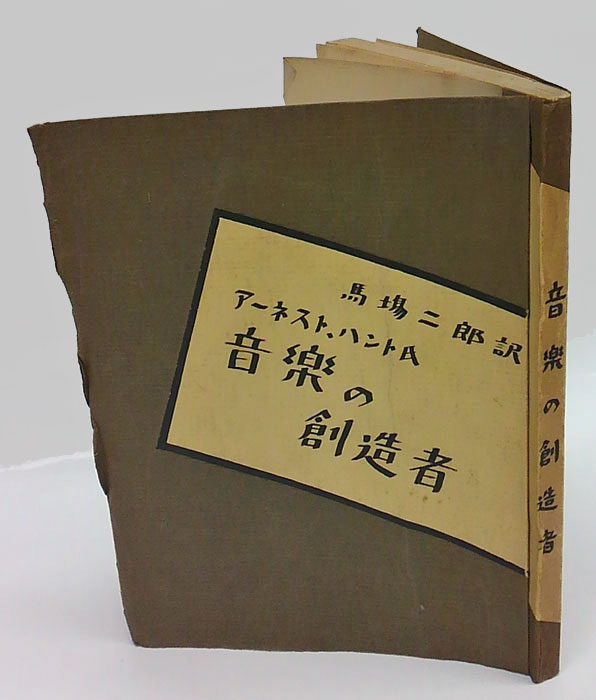 馬場二郎訳
アーネスト、ハント氏
音楽の
創造者
音楽の創造者